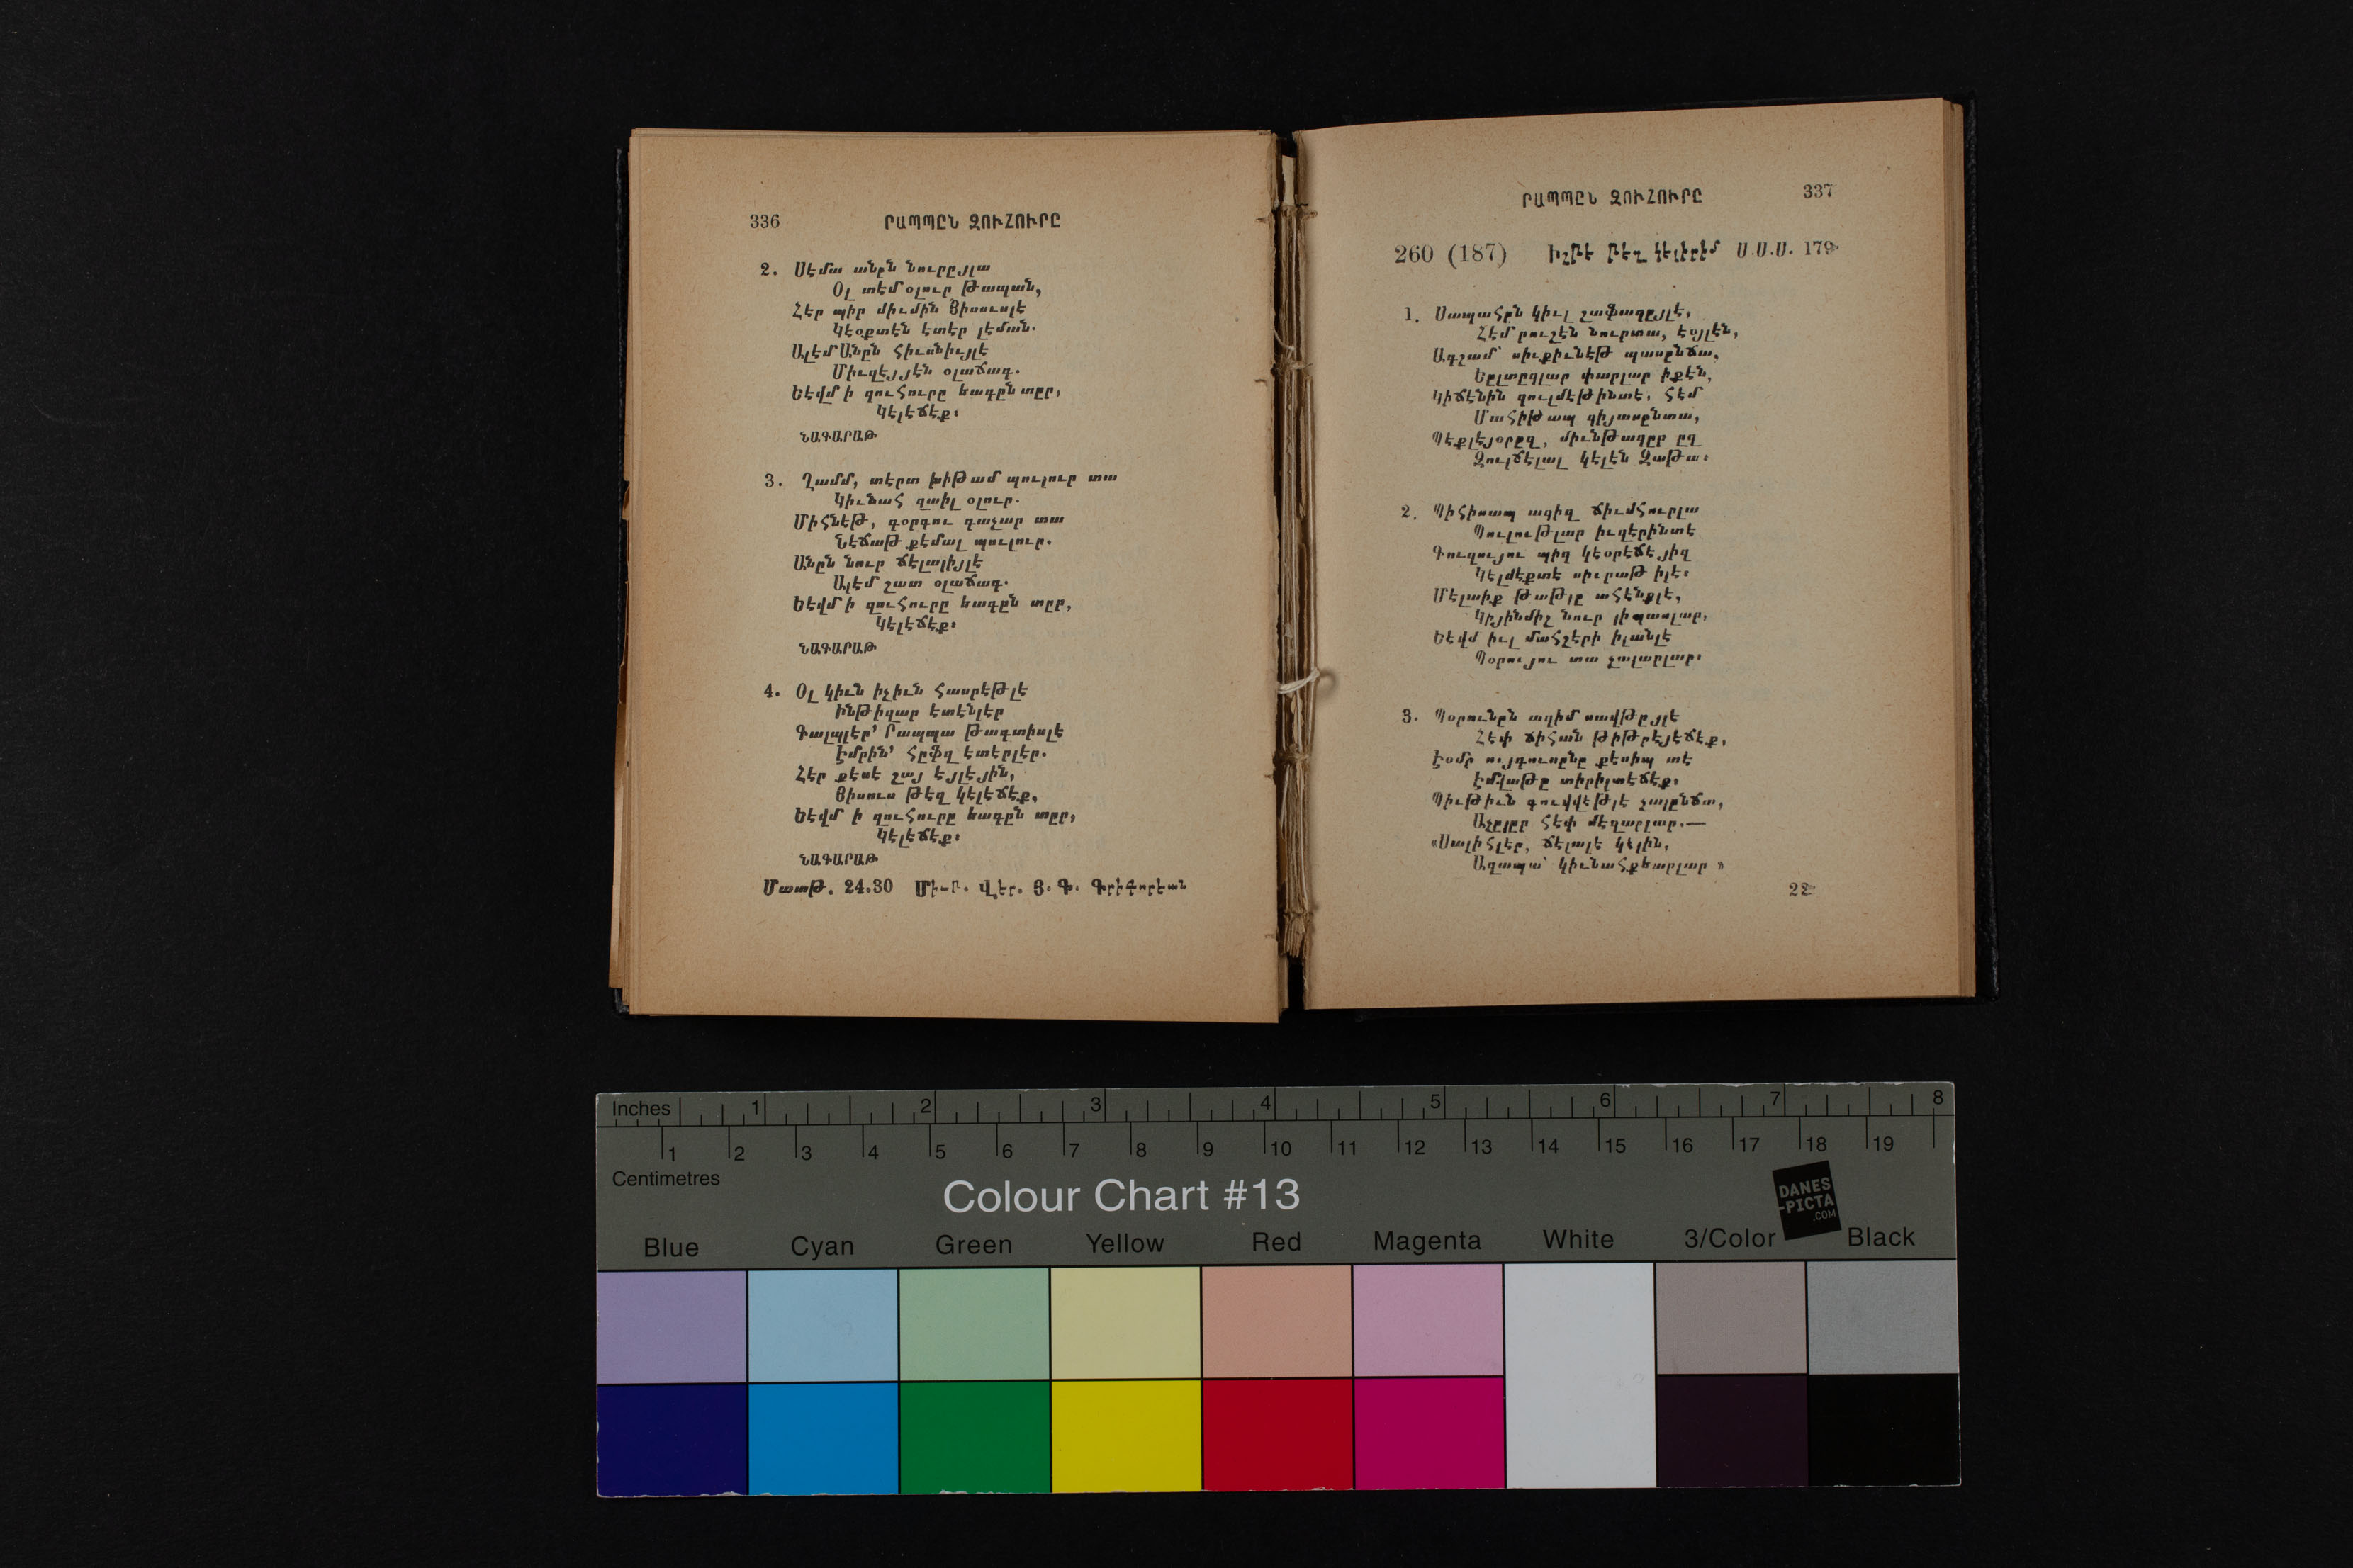 336 ՐԱՊՊԸՆ ԶՈՒՀՈՒՐԸ
2. Սէմա անըն նուրըյլա
Օլ տէմ օլուր թապան,
Հէր պիր միւմին Յիսուսլէ
Կէօքտէն էտէր լէման.
Ալէմ Անըն հիւսնիւյլէ
Միւզէյյէն օլաճագ.
Եէվմ ի զուհուրը եագըն տըր,
Կէլէճէք։
ՆԱԳԱՐԱԹ
3. Ղամմ, տէրտ խիթամ պուլուր տա
Կիւնահ զաիլ օլուր.
Միհնէթ, գօրգու գաչար տա
Նէճաթ քէմալ պուլուր.
Անըն նուր ճէլալիյլէ
Ալէմ շատ օլաճագ.
Եէվմ ի զուհուրը եագըն տըր,
Կէլէճէք։
ՆԱԳԱՐԱԹ
4. Օլ կիւն իչիւն հասրէթլէ
Ինթիզար էտէնլէր
Գալպլէր՝ Րապպա թագտիսլէ
Էմրին՝ հըֆզ էտէրլէր.
Հէր քէսէ շայ էյլէյին,
Յիսուս թէզ կէլէճէք,
Եէվմ ի զուհուրը եագըն տըր,
Կէլէճէք։
ՆԱԳԱՐԱԹ
Մատթ. 24.30 Միւր. Վէր. Յ. Գ. Գրիգորեան
ՐԱՊՊԸՆ ԶՈՒՀՈՒՐԸ 337
260 (187) Իշթէ թէզ կէլիրիմ Ս.Ս.Ս. 179
1. Սապահըն կիւլ շաֆագըյլէ,
Հէմ րուշէն նուրտա, էօյլէն,
Ագշամ՝ սիւքիւնէթ պասընճա,
Եըլտըզլար փարլար իքէն,
Կիճէնին զուլմէթինտէ, հէմ
Մահիթապ զիյասընտա,
Պէքլէյօրըզ, միւնթազըր ըզ
Զուլճելալ կէլէն Զաթա։
2. Պիհիսապ ազիզ ճիւմհուրլա
Պուլութլար իւզէրինտէ
Գուզույու պիզ կէօրէճէյիզ
Կէլմէքտէ սիւրաթ իլէ։
Մէլաիք թաթլը ահէնքլէ,
Կիյինմիշ նուր լիպասլար,
Եէվմ իւլ մահշէրի իլանլէ
Պօրույու տա չալարլար։
3. Պօրունըն ազիմ սավթըյլէ
Հէփ ճիհան թիթրէյէճէք,
Էօմր ույգուսընը քէսիպ տէ
Էմվաթը տիրիլտէճէք։
Պիւթիւն գուվվէթլէ չալընճա,
Աչըլըր հէփ մէզարլար.—
«Սալիհլէր, ճէլալէ կէլին,
Ազապա՝ կիւնահքեարլար »
22
Inches 1 2 3 4 5 6 7 8
1 2 3 4 5 6 7 8 9 10 11 12 13 14 15 16 17 18 19
Centimetres
Colour Chart #13
DANES
-PICTA
.COM
Blue Cyan Green Yellow Red Magenta White 3/Color Black